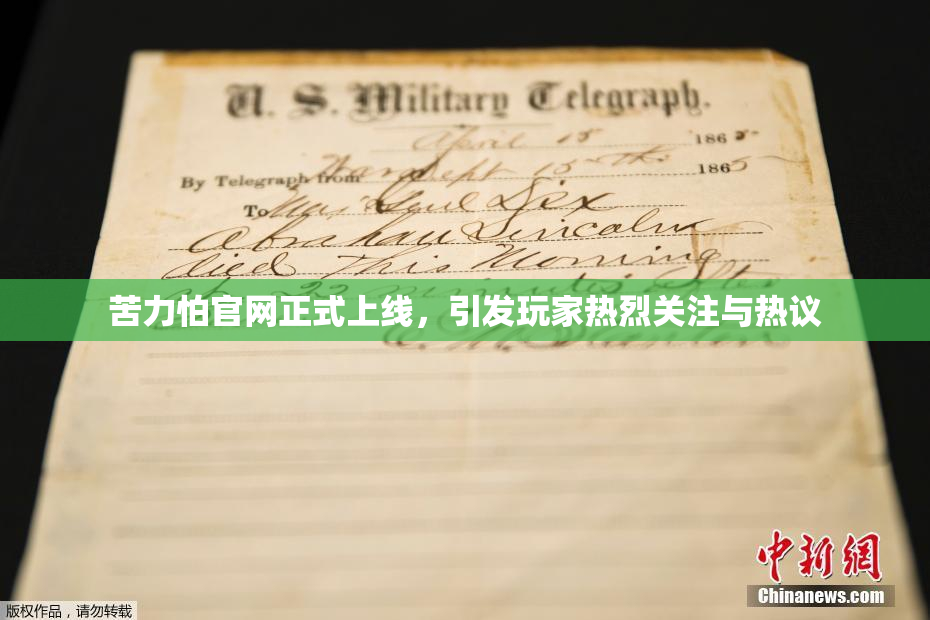 U. S. Military Telegraph.
April 15 1865
By Telegraph from War Dept 15th 1865
To Maj Genl Dix
Abraham Lincoln
died This Morning
22 minutes after
苦力怕官网正式上线，引发玩家热烈关注与热议
E. M. Stanton
中新網
Chinanews.com
版权作品，请勿转载